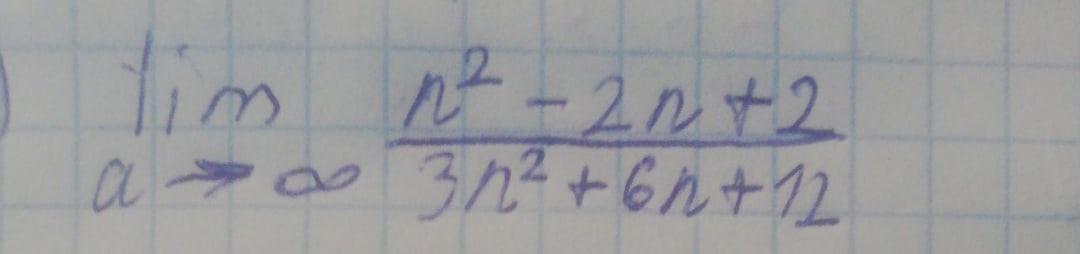 lim n² - 2n + 2
a → ∞ 3n² + 6n + 12